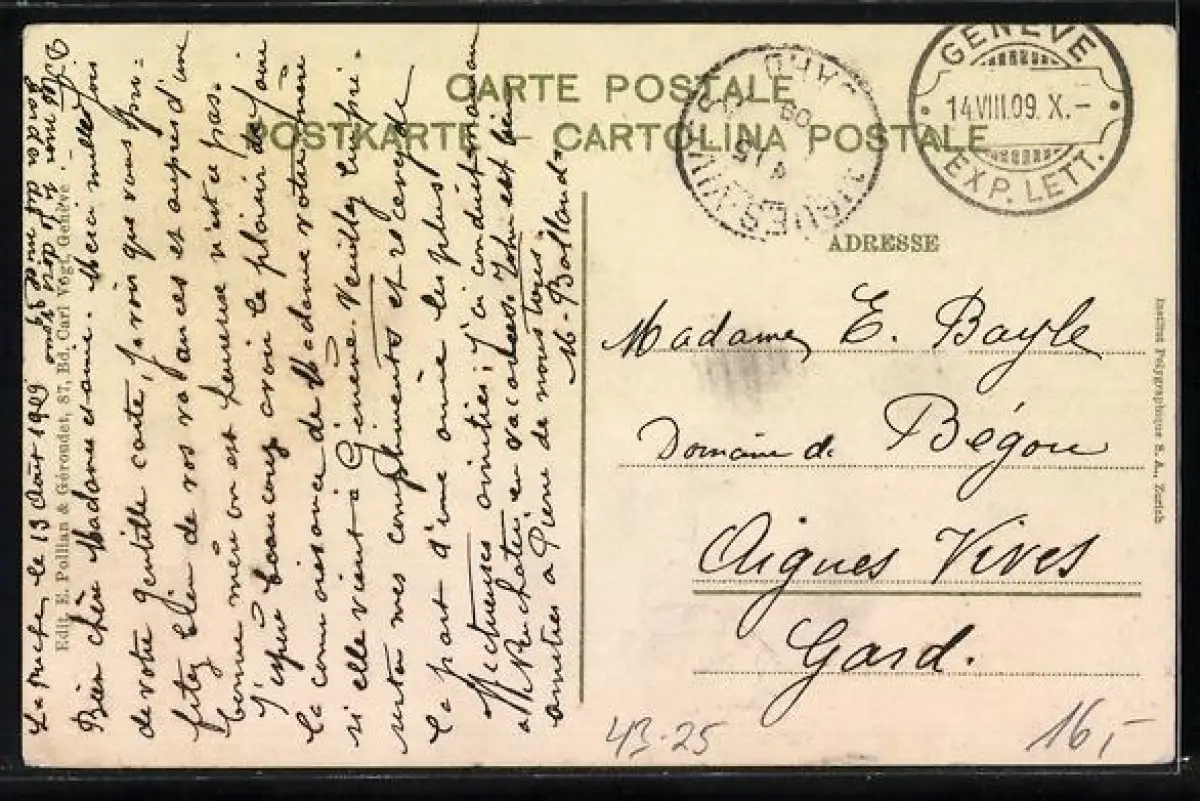 CARTE POSTALE
POSTKARTE – CARTOLINA POSTALE
ADRESSE
GENÈVE
14 VIII.09. X.–
EXP. LETT.
AIGUES-VIVES
09
Madame E. Bayle
Domaine de Bégou
Aigues Vives
Gard.
43-25
16,-
Institut Polygraphique S. A., Zurich
Edit. E. Pollian & Géroudet, 87, Bd. Carl Vogt, Genève
le 13 Août 1909
Bien chère Madame et amie. Merci mille fois
de votre gentille carte, je vois que vous pro-
fitez bien de vos vacances et auprès d'une
bonne mère on est heureuse n'est ce pas.
J'espère beaucoup avoir le plaisir de faire
la connaissance de Madame votre mère
si elle vient à Genève. Veuillez lui pré-
senter mes compliments et recevez de
la part d'une amie les plus
affectueuses amitiés; j'ai conduit maman
à Neuchâtel en vacances est bien
amitiés à Pierre de nous tous.
M. Balland